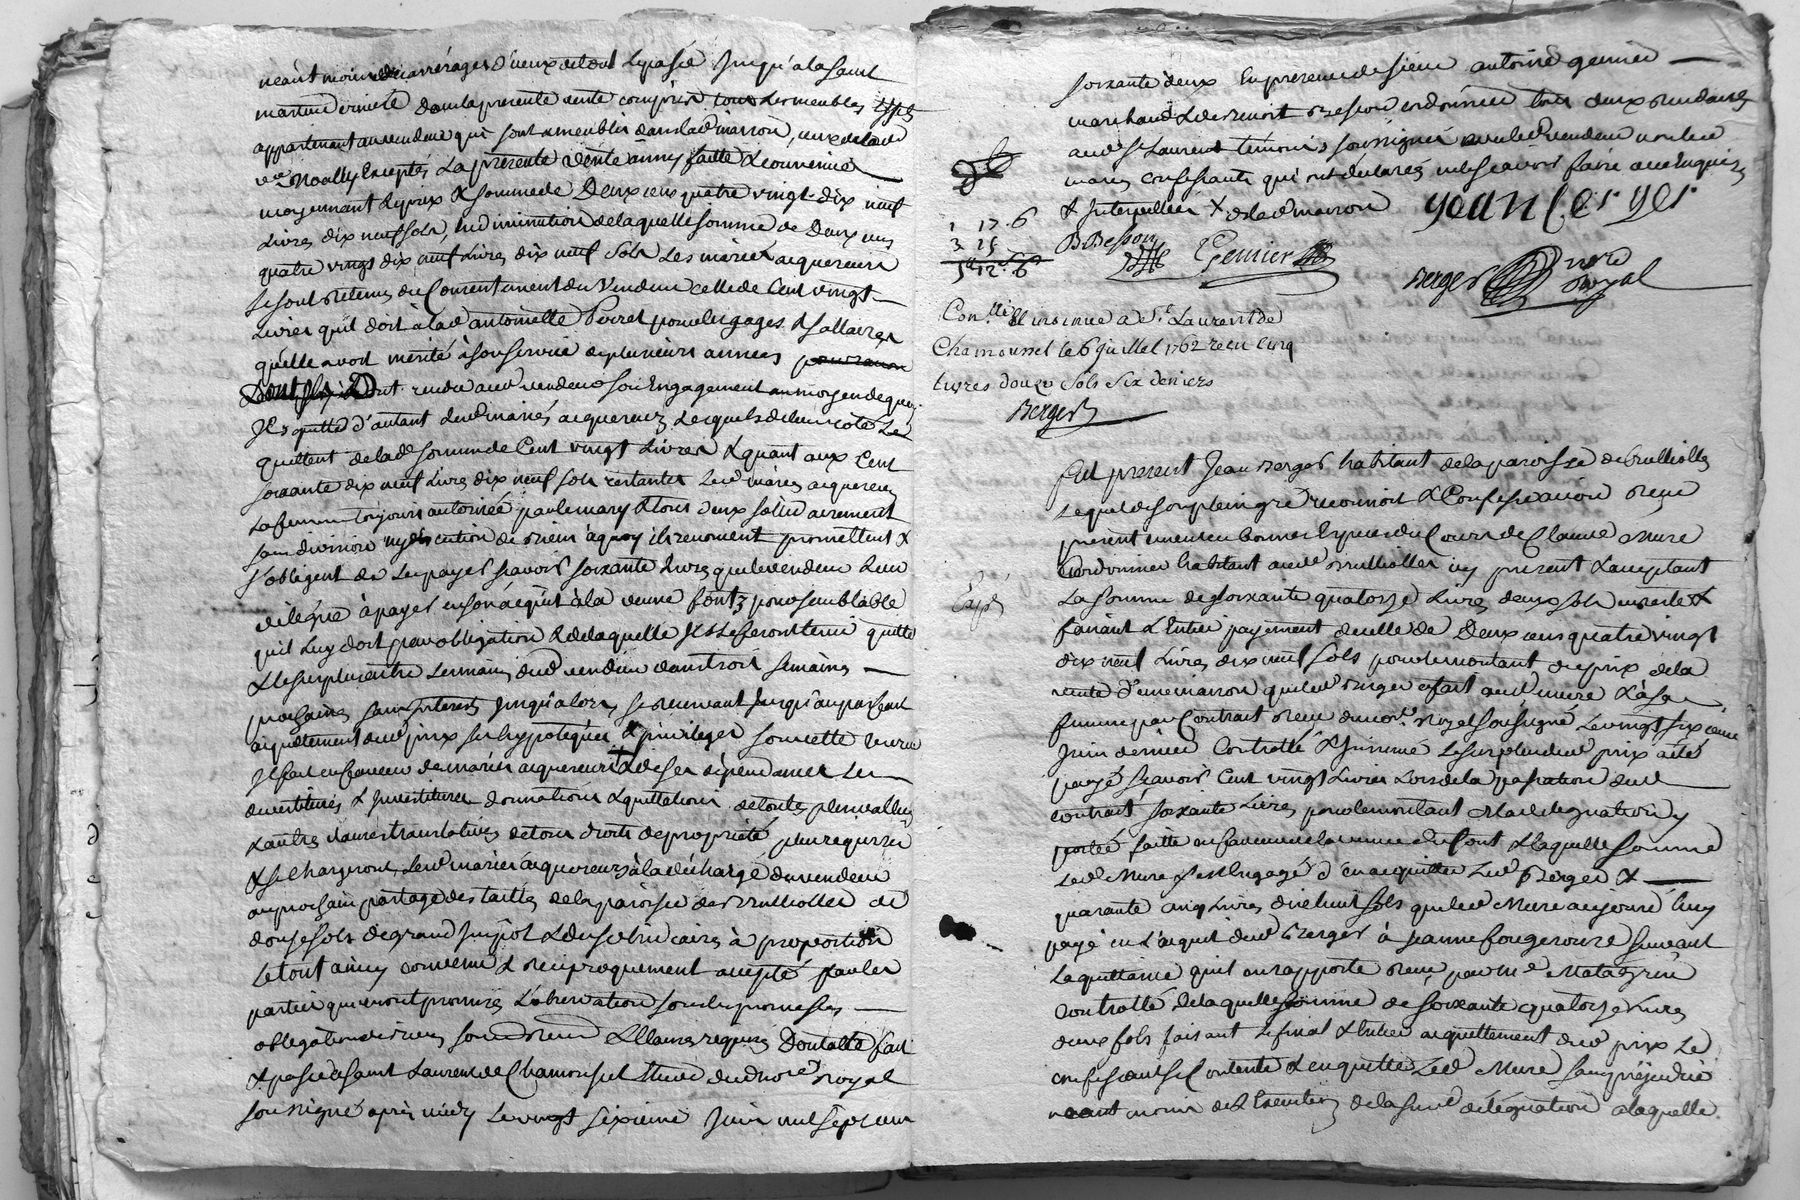 neant moins des arrerages d'iceux de tout le passé jusqu'a la saint
martin derniere dans la presente vente compris tous les meubles
appartenant au vendeur qui sont a meubler dans lad maison, ceux de lad
ve Noally Exceptés La presente vente ainsy faitte & convenue
moyennant le prix & somme de Deux cens quatre vingt-dix neuf
Livres dix neuf sols, en diminution de laquelle somme de Deux cens
quatre vingt dix neuf Livres dix neuf sols Les mariés acquereurs
se sont retenus du Consentement du Vendeur celle de Cent vingt
Livres qu'il doit a lad antoinette Perret pour les gages & sallaires
qu'elle avoit merité a son service de plusieurs années
rendre aud vendeur son Engagement au moyen de quoy
Ils quitte d'autant lesd mariés acquereurs Lesquels de leur coté Le
quittent de lad somme de Cent vingt Livres & quant aux Cent
soixante dix neuf Livres dix neuf sols restantes Lesd mariés acquereurs
La femme toujours autorisée par le mary & tous deux sollidairement
sans division ny discution de biens a quoy ils renoncent promettent &
s'obligent de Les payer sçavoir soixante Livres que le vendeur leur
delegue à payer en son acquit à la veuve font pour semblable
qu'il luy doit par obligation & de laquelle Ils Le feront tenir quitte
& le surplus entre Les mains dud vendeur dans trois semaines
prochaines sans Interests jusqu'alors, se reservant jusqu'au parfait
acquittement dud prix ses hypoteques & privileges sous cette reserve
Il fait en faveur de mariés acquereurs & de ses dependances Les
devestitures & Investitures donnations & quittations de toutes plus vallues
& autres clauses translatives de tous droits de proprieté plus requises
& se chargeront Lesd mariés acquereurs à la decharge du vendeur
au prochain partage des tailles de la paroisse de Brullioles de
douze sols de grand Impot & des subsidiaires à proportion
Le tout ainsy convenu & reciproquement accepté par les
parties qui en ont promis L'observation sous les promesses
obligations de biens soumissions & Clauses requises Dont acte fait
& passé a saint Laurent de Chamousset Etude dud nore royal
soussigné après midy Le vingt sixieme Juin mil sept cent
soixante deux En presence de sieur antoine Genier
marchand & de Benoit Besson cordonnier tous deux demeurants
aud St Laurent temoins soussignés avec led vendeur non les
mariés confessants qui ont declarés ne le scavoir faire de ce Enquis
& Interpellés X de lad maison
jean berger
B Besson
Genier
Berger nore royal
1 17.6
3 15
5ll 12s 6
Con.llé & insinué a St. Laurent de
Chamousset le 6 juillet 1762 reçu cinq
livres douze sols six deniers
Berger
Fut present Jean Berger habitant de la paroisse de Brullioles
Lequel de son plein gré reconnoit & Confesse avoir reçu
presentement en bonnes Especes du Cours de Claude Mure
Cordonnier habitant aud Brullioles icy present & acceptant
Expé
La somme de soixante quatorze Livres deux sols en reste &
faisant L'Entier payement de celle de Deux cens quatre vingt
dix neuf Livres dix neuf sols pour le montant du prix de la
vente d'une maison que led Berger a fait aud mure & à sa
femme par Contract reçu du nore royal soussigné Le vingt sixieme
juin dernier Controllé & Insinué Le surplus dud prix a été
payé sçavoir Cent vingt Livres Lors de la passation dud
contract, soixante Livres pour le montant de la delegation y
portée faitte en faveur de la veuve du font & laquelle somme
Led Mure s'est Engagé d'en acquitter Led Berger &
quarante cinq Livres dix huit sols que led Mure a ce jourd'huy
payé en L'acquit dud Berger à jeanne fougerouse suivant
La quittance qu'il en rapporte reçu par Me Matagrin
Controllé de laquelle somme de soixante quatorze Livres
deux sols faisant Le final & Entier acquittement dud prix Le
confessant se Contente & en quitte Led Mure sans prejudice
neant moins de L'Execution de la susd delegation a laquelle